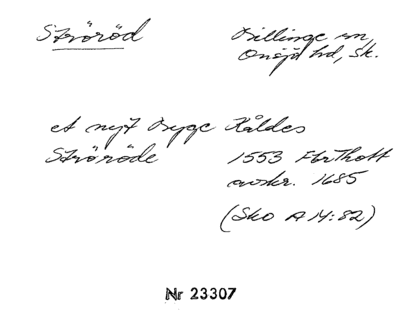 Ströröd
Billinge sn,
Onsjö hd, Sk.
et nyt Byge Kåldes
Ströröde
1553 FbrThott
avskr. 1685
(Sko A 14:82)
Nr 23307